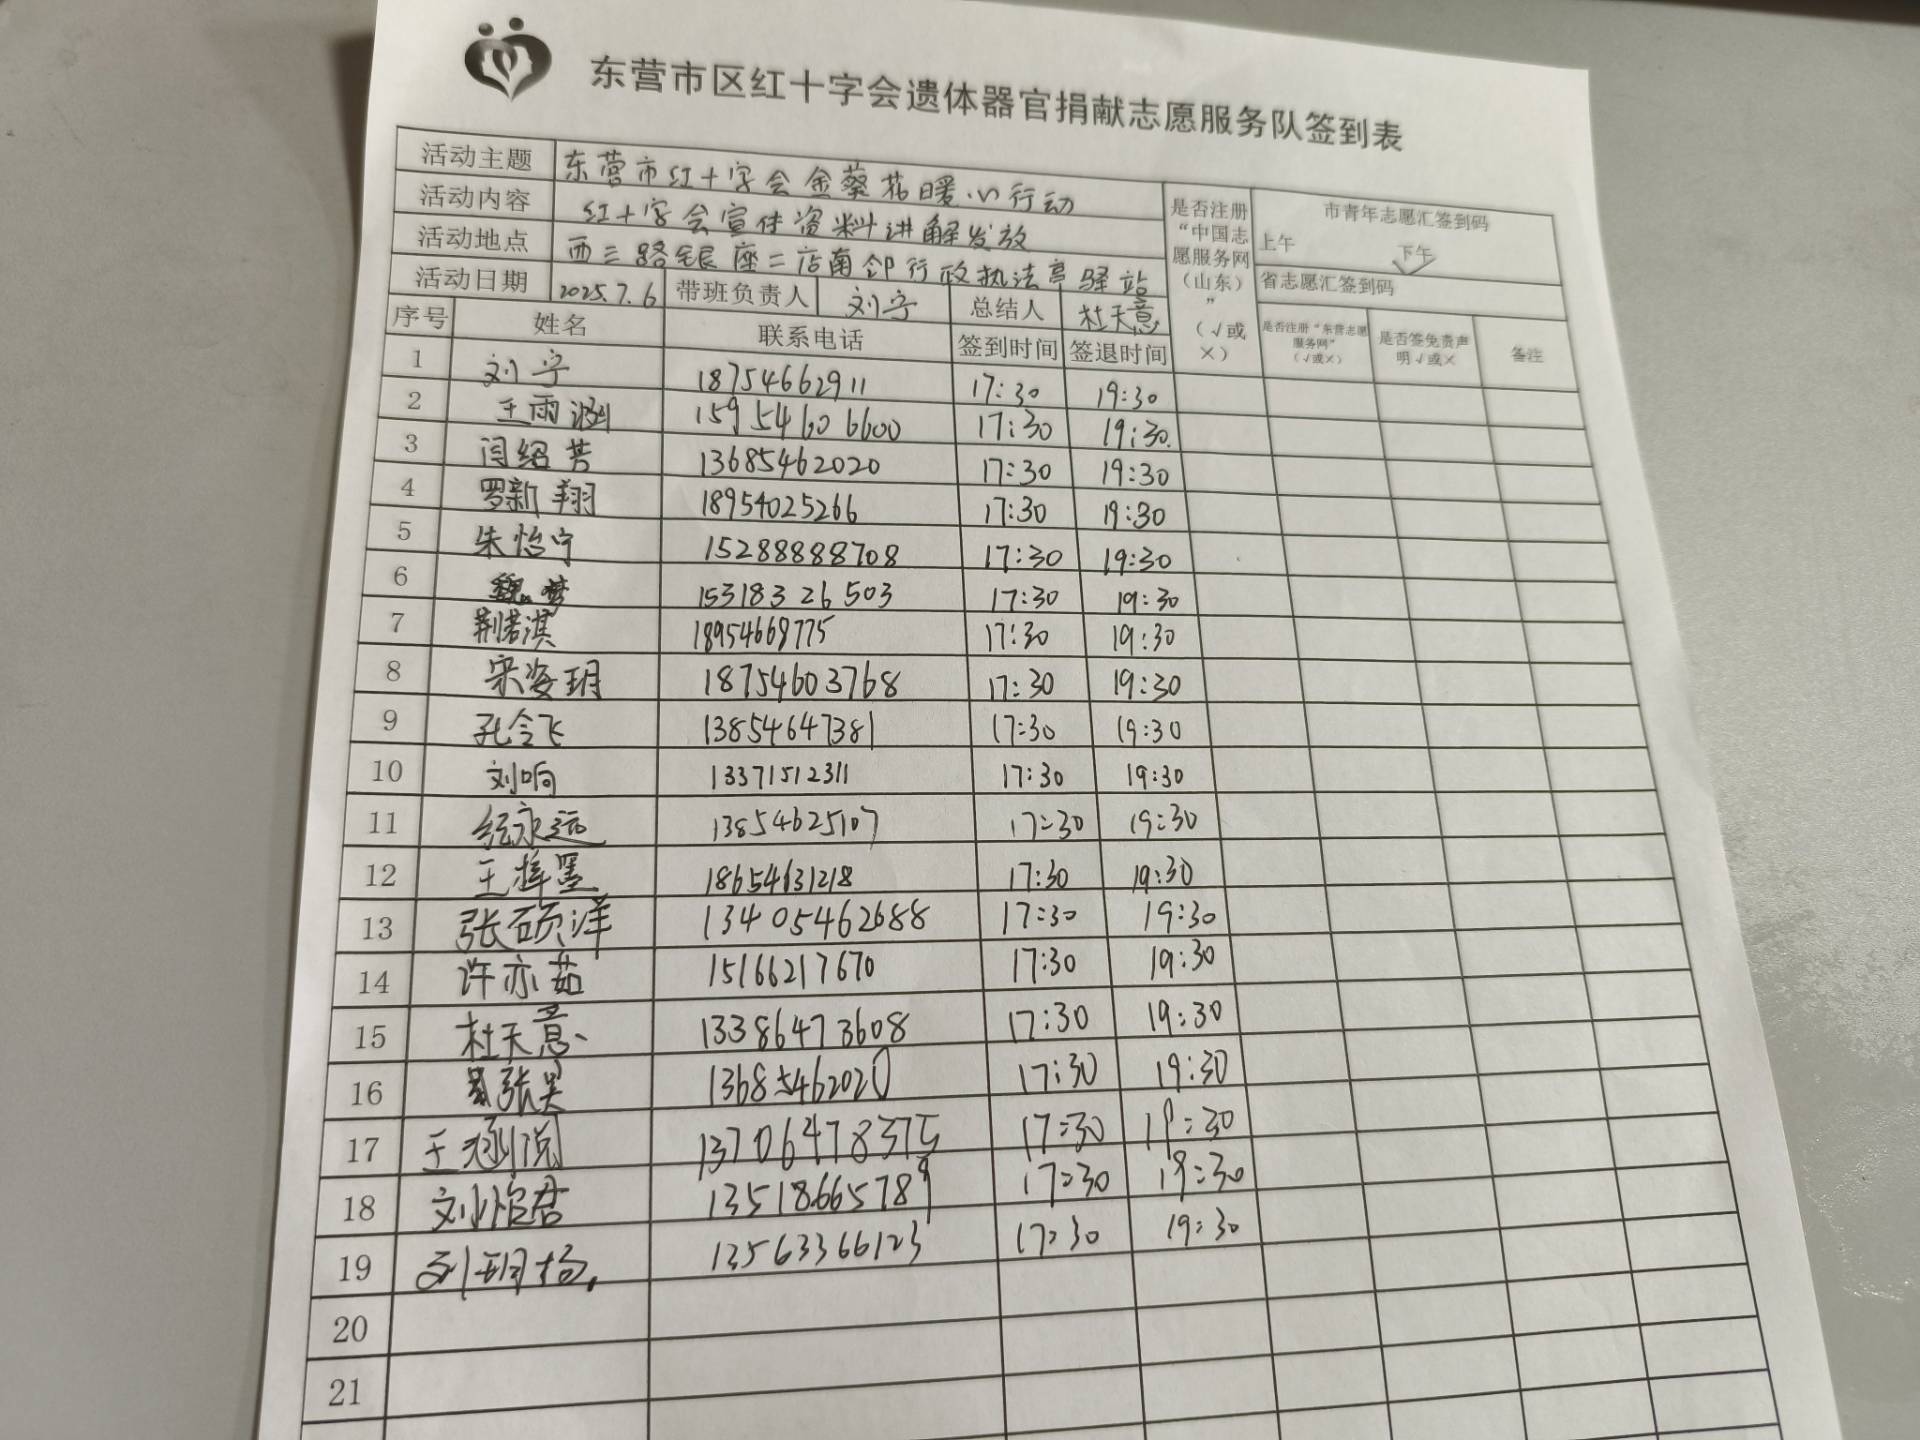 东营市区红十字会遗体器官捐献志愿服务队签到表
活动主题 东营市红十字会金葵花暖心行动
活动内容 红十字会宣传资料讲解发放
活动地点 西三路银座二店南邻行政执法亭驿站
活动日期 2025.7.6 带班负责人 刘宇 总结人 杜天意
是否注册“中国志愿服务网（山东）”（√或×）
市青年志愿汇签到码
上午 下午 √
省志愿汇签到码
序号 姓名 联系电话 签到时间 签退时间 是否注册“东营志愿服务网”（√或×） 是否签免责声明√或× 备注
1 刘宇 18754662911 17:30 19:30
2 王雨涵 15954606600 17:30 19:30
3 闫绍芳 13685462020 17:30 19:30
4 罗新翔 18954025266 17:30 19:30
5 朱怡宁 15288888708 17:30 19:30
6 魏梦 15318326503 17:30 19:30
7 荆若淇 18954669775 17:30 19:30
8 宋姿玥 18754603768 17:30 19:30
9 孔令飞 13854647381 17:30 19:30
10 刘响 13371512311 17:30 19:30
11 纪永远 13854625107 17:30 19:30
12 王梓墨 18654631218 17:30 19:30
13 张硕洋 13405462688 17:30 19:30
14 许亦茹 15166217670 17:30 19:30
15 杜天意 13386473608 17:30 19:30
16 张昊 13685462020 17:30 19:30
17 王涵悦 13706478375 17:30 19:30
18 刘怡君 13518665789 17:30 19:30
19 刘玥杨 13563366123 17:30 19:30
20
21